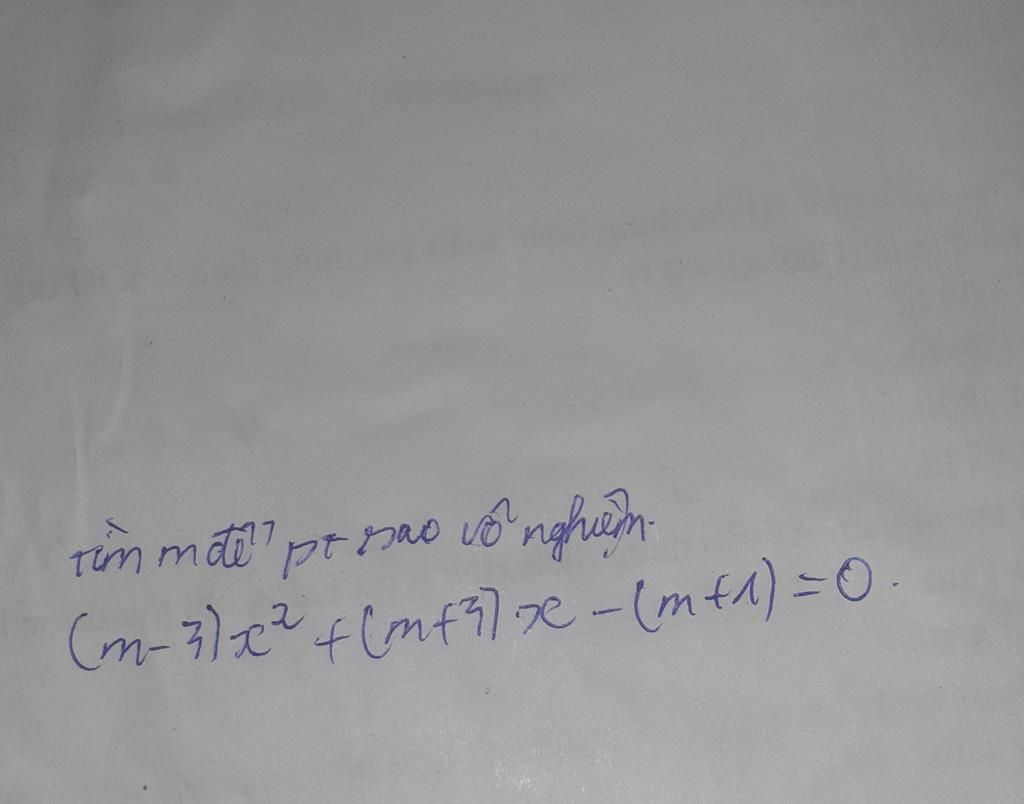 tìm m để pt sao vô nghiệm.
(m-3)x² + (m+3)x - (m+1) = 0.